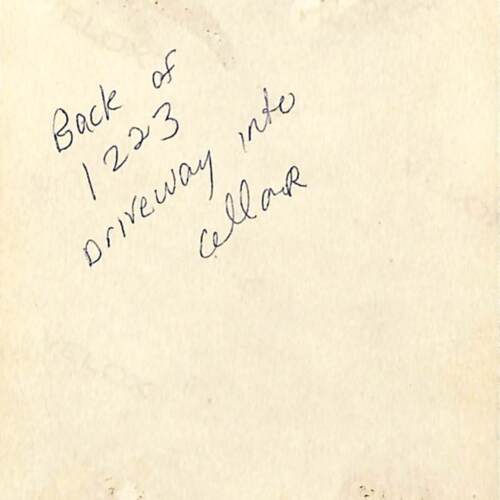 Back of
1223
Driveway into
cellar